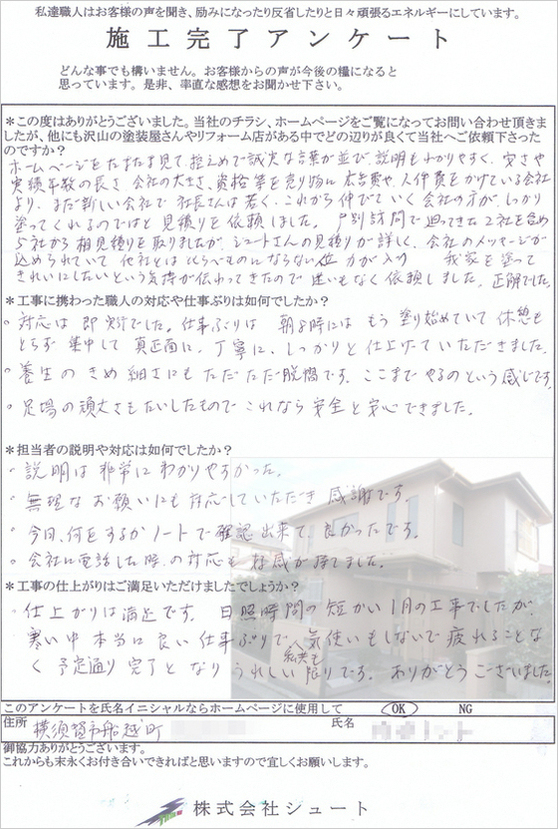 私達職人はお客様の声を聞き、励みになったり反省したりと日々頑張るエネルギーにしています。
施工完了アンケート
どんな事でも構いません。お客様からの声が今後の糧になると
思っています。是非、率直な感想をお聞かせ下さい。
＊この度はありがとうございました。当社のチラシ、ホームページをご覧になってお問い合わせ頂きま
したが、他にも沢山の塗装屋さんやリフォーム店がある中でどの辺りが良くて当社へご依頼下さった
のですか？
ホームページをたまたま見て、控えめで誠実な言葉が並び、説明もわかりやすく、安さや
実績年数の長さ 会社の大きさ、資格等を売り物に 広告費や、人件費をかけている会社
より、まだ新しい会社で 社長さんは若く、これから伸びていく会社の方が、しっかり
塗ってくれるのではと 見積りを依頼しました。戸別訪問で廻ってきた2社を含め
5社から 相見積りを取りましたが、シュートさんの見積りが詳しく、会社のメッセージが
込められていて 他社とは比らべものにならない位 力が入り 我家を塗って
きれいにしたいという気持が伝わってきたので 迷いもなく依頼しました。正解でした。
＊工事に携わった職人の対応や仕事ぶりは如何でしたか？
。対応は 即実行でした。仕事ぶりは 朝8時には もう塗り始めていて 休憩も
とらず 集中して 真正面に、丁寧に、しっかりと 仕上げて いただきました。
。養生の きめ細さにも ただただ脱帽です。ここまで やるのという感じです。
。足場の頑丈さもたいしたもので これなら安全と安心できました。
＊担当者の説明や対応は如何でしたか？
。説明は 非常に わかりやすかった。
。無理な お願いにも 対応していただき 感謝です。
。今日、何をするか ノートで確認出来て、良かったです。
。会社に電話した時の対応も 好感が持てました。
＊工事の仕上がりはご満足いただけましたでしょうか？
。仕上がりは満足です。日照時間の短かい1月の工事でしたが、
寒い中 本当に良い仕事ぶりで、気使いもしないで 疲れることな
く 予定通り 完了と なり 夫共も うれしい 限りです。ありがとうございました。
このアンケートを氏名イニシャルならホームページに使用して OK NG
住所 横須賀市船越町 氏名
御協力ありがとうございます。
これからも末永くお付き合いできればと思いますので宜しくお願いします。
株式会社シュート